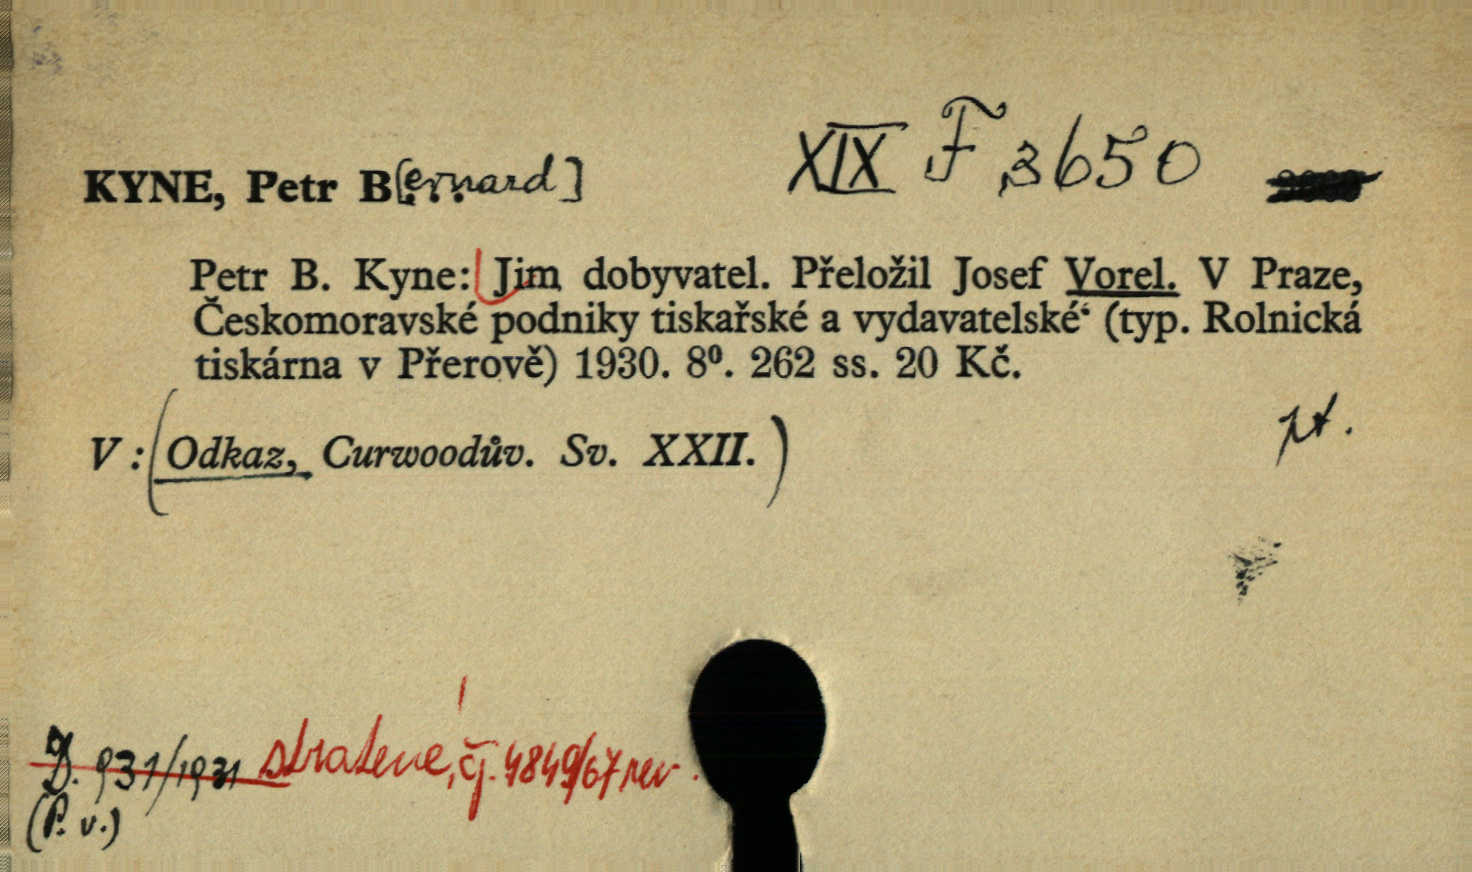 XIX F 3650
KYNE, Petr B[ernard]
Petr B. Kyne: Jim dobyvatel. Přeložil Josef Vorel. V Praze,
Českomoravské podniky tiskařské a vydavatelské‘ (typ. Rolnická
tiskárna v Přerově) 1930. 8⁰. 262 ss. 20 Kč.
pt.
V: (Odkaz, Curwoodův. Sv. XXII.)
D. 931/1931 stratené, čj. 4849/67 rev.
(P. v.)